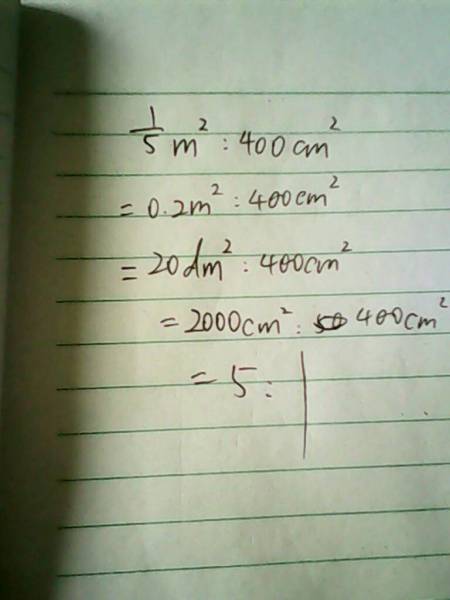 1/5 m² : 400cm²
= 0.2m² : 400cm²
= 20dm² : 400cm²
= 2000cm² : 400cm²
= 5 : 1